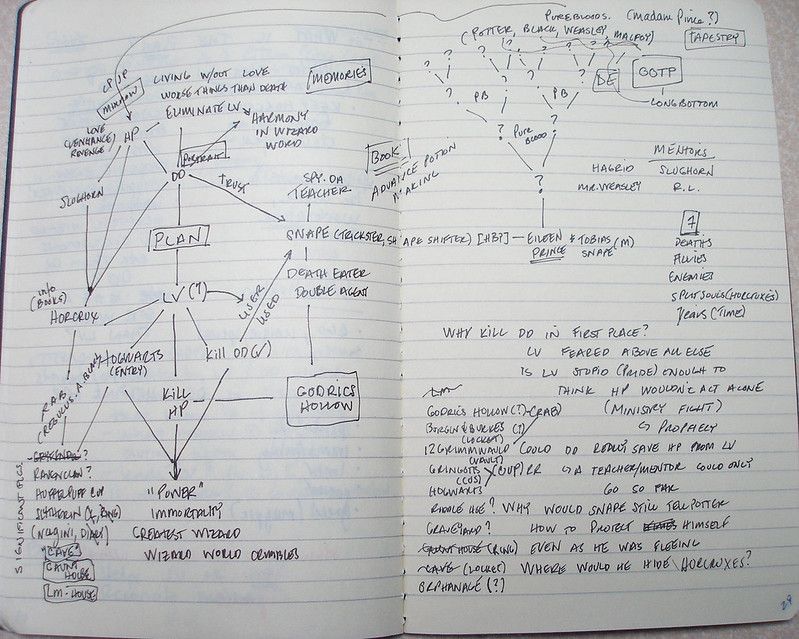 LIVING W/OUT LOVE
WORSE THINGS THAN DEATH
MEMORIES
ELIMINATE LV
HP
LOVE
(VENGEANCE)
REVENGE
HARMONY
IN WIZARD
WORLD
PORTRAIT
DD
TRUST
SLUGHORN
SPY, DA
TEACHER
PLAN
SNAPE (TRICKSTER, SHAPE SHIFTER) [HBP] — EILEEN & TOBIAS (M)
PRINCE SNAPE
DEATH EATER
DOUBLE AGENT
info
(BOOKS)
HORCRUX
LV (?)
USER
USED
HOGWARTS
(ENTRY)
KILL DD (✓)
KILL
HP
GODRICS
HOLLOW
RAB
SIGNIFICANT PLCS.
RAVENCLAW?
HUFFLEPUFF CUP
SLYTHERIN (L, RING)
(NAGINI, DIARY)
CAVE
GAUNT
HOUSE
LM - HOUSE
"POWER"
IMMORTALITY
GREATEST WIZARD
WIZARD WORLD
PUREBLOODS. (Madam Prince?)
(POTTER, BLACK, WEASLEY, MALFOY)
TAPESTRY
? ? ? ? ? ?
? ? ? ?
DE
OOTP
LONGBOTTOM
PB PB
? ?
PURE
BLOOD
?
BOOK
ADVANCE POTION
MAKING
MENTORS
HAGRID SLUGHORN
MR. WEASLEY R.L.
7
DEATHS
ALLIES
ENEMIES
SPLIT SOULS (HORCRUXES)
YEARS (TIME)
WHY KILL DD IN FIRST PLACE?
LV FEARED ABOVE ALL ELSE
IS LV STUPID (PRIDE) ENOUGH TO
LM THINK HP WOULDN'T ACT ALONE
GODRICS HOLLOW (?) - (RAB) (MINISTRY FIGHT)
BORGIN & BURKES (?) ↳ PROPHECY
(LOCKET)
12 GRIMMAULD COULD DD REALLY SAVE HP FROM LV
(VAULT)
GRINGOTS (CUP) RR ↳ A TEACHER/MENTOR COULD ONLY
(COS)
HOGWARTS GO SO FAR
RIDDLE HSE? WHY WOULD SNAPE STILL TELL POTTER
GRAVEYARD? HOW TO PROTECT HIMSELF
GAUNT HOUSE (RING) EVEN AS HE WAS FLEEING
CAVE (LOCKET) WHERE WOULD HE HIDE HORCRUXES?
ORPHANAGE (?)
29